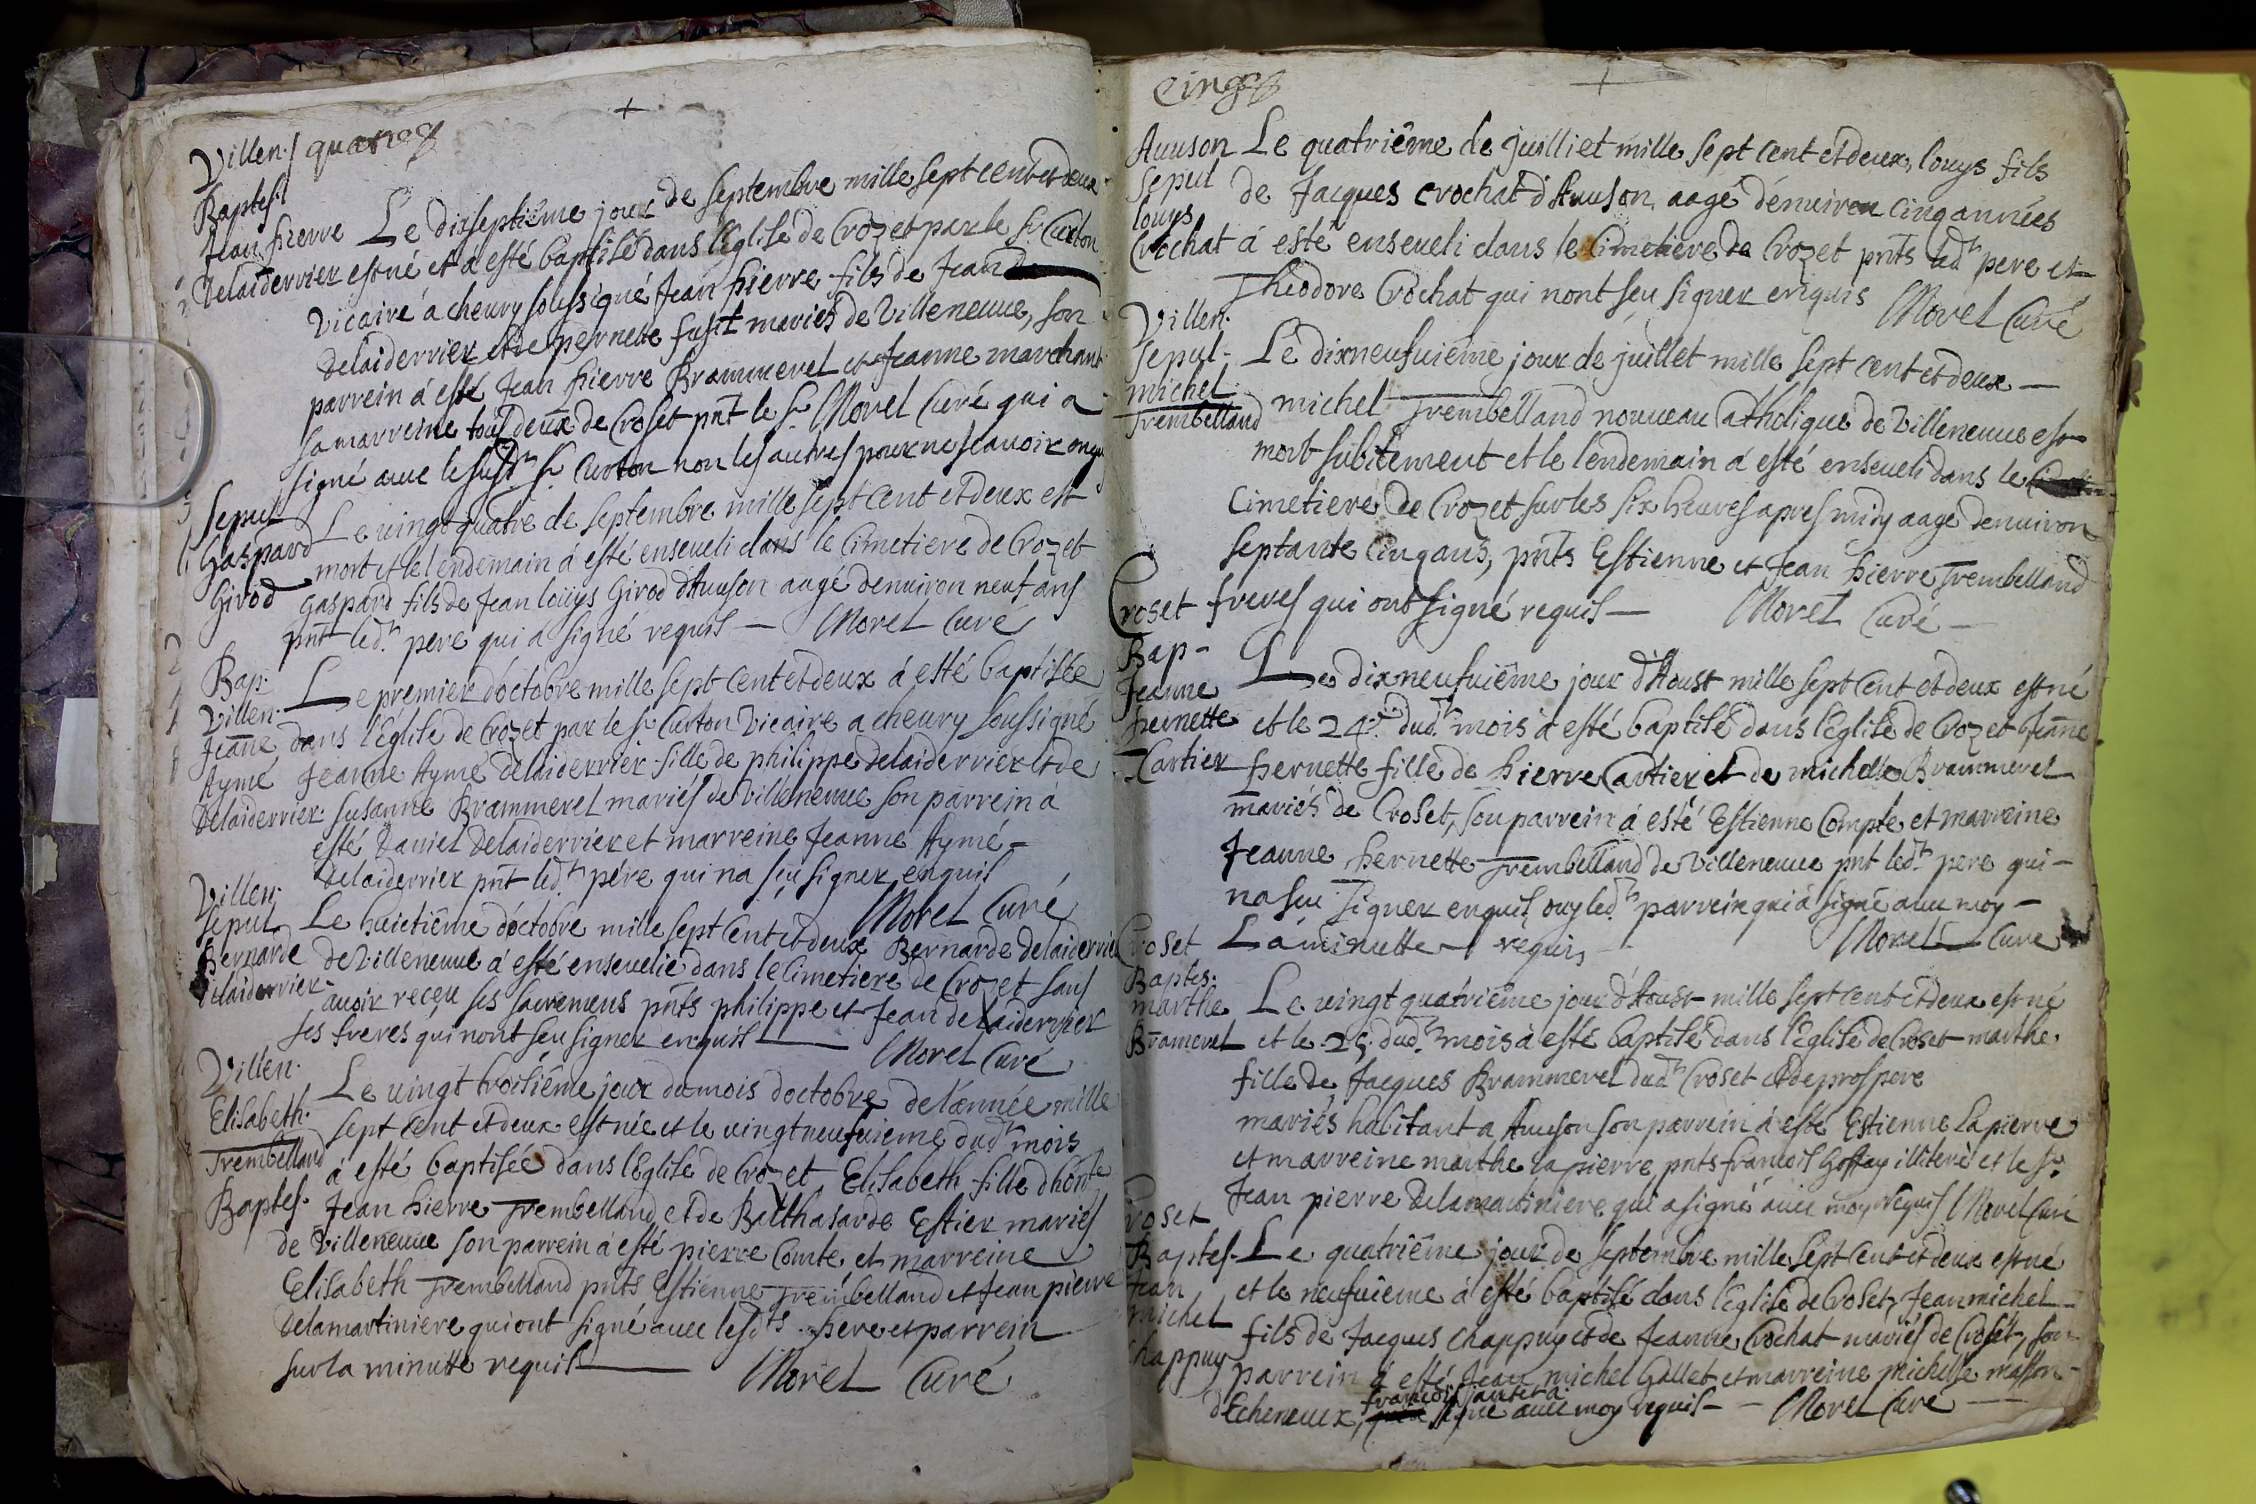 Villen.
Baptes.
Jean pierre
Delaiderrier
Le dixseptiême jour de septembre mille sept cent et deux
est né et a esté baptisé dans l'Eglise de Crozet par le Sr. Curton
Vicaire á cheury soussigné Jean pierre fils de Jean
Delaiderrier et de pernette mariés de Villeneuue, son
parrein á esté Jean pierre Brammerel et Jeanne marchant
sa marreine tous deux de Croset pnt le Sr. Morel Curé qui a
signé auec le susd. Sr. Curton non les autres pour ne scauoir enquis
Sepul
Gaspard
Girod
Le uingt quatre de septembre mille sept cent et deux est
mort et le lendemain á esté enseueli dans le Cimetiere de Crozet
Gaspard fils de Jean louys Girod d'Auuson aagé denuiron neuf ans
pnt led. pere qui a signé requis — Morel Curé
Bap.
Villen.
Jeanne
Aymé
Delaiderrier
Le premier d'octobre mille sept cent et deux á esté baptisée
dans l'Eglise de Crozet par le Sr. Curton Vicaire a cheury soussigné
Jeanne Aymé Delaiderrier fille de philippe Delaiderrier et de
Susanne Brammerel mariés de Villeneuue son parrein á
esté Daniel Delaiderrier et marreine Jeanne Aymé –
Delaiderrier pnt led. pére qui na sçu signer enquis
Morel Curé
Villen.
Sepul.
Bernarde
Delaiderrier
Le huictiême d'octobre mille sept cent et deux Bernarde Delaiderrier
de Villeneuue á esté enseuelie dans le Cimetiere de Crozet sans
auoir reçeu ses sacremens pnts philippe et Jean delaiderrier
ses freres qui nont seu signer enquis —
Morel Curé
Villen.
Elisabeth
Trembelland
Baptes.
Le uingt troisiême jour du mois d'octobre de l'année mille
sept cent et deux est née et le uingt neufuieme dud. mois
á esté baptisée dans l'Eglise de Crozet Elisabeth fille d'honte
Jean pierre Trembelland et de Balthasarde Estier mariés
de Villeneuue son parrein á esté pierre Comte et marreine
Elisabeth Trembelland pnts Estienne Trembelland et Jean pierre
Delamartiniere qui ont signé auec lesdts pere et parrein
sur la minutte requis — Morel Curé
Auuson
Sepul
louys
Crochat
Le quatriême de juilliet mille sept cent et deux, louys fils
de Jacques Crochat d'Auuson, aagé d'enuiron cinq années
á esté enseueli dans le Cimetiere de Crozet pnts led. pere et
Theodore Crochat qui nont seu signer enquis Morel Curé
Villen.
Sepul.
michel
Trembelland
Le dixneufuiême jour de juillet mille sept cent et deux —
michel Trembelland nouueau Catholique de Villeneuue est
mort subitement et le lendemain á esté enseueli dans le
Cimetiere de Crozet sur les six heures apres midy aagé denuiron
septante cinq ans, pnts Estienne et Jean pierre Trembelland
freres qui ont signé requis — Morel Curé —
Croset
Bap –
Jeanne
pernette
Cartier
Le dixneufuiême jour d'Aoust mille sept cent et deux est né
et le 24e. dud. mois á esté baptisé dans l'Eglise de Crozet Jeanne
pernette fille de pierre Cartier et de michelle Brammerel
mariés de Croset, son parrein á esté Estienne Compte et marreine
Jeanne pernette Trembelland de Villeneuue pnt led. pere qui –
na seu signer enquis ouy led. parrein qui á signé auec moy –
La minutte requis Morel Curé
Croset
Baptes.
marthe
Bramerel
Le uingt quatriême jour d'Aoust mille sept cent et deux est né
et le 25. dud. mois á esté baptisé dans l'Eglise de Croset marthe
fille de Jacques Brammerel dud. Croset et de prospere
mariés habitant a Auuson son parrein á esté Estienne Lapierre
et marreine marthe Lapierre pnts francois illiteré et le Sr.
Jean pierre Delamartiniere qui a signé auec moy requis Morel Curé
Croset
Baptes.
Jean
michel
Chappuy
Le quatriême jour de septembre mille sept cent et deux est né
et le neufuieme á esté baptisé dans l'Eglise de Croset, Jean michel –
fils de Jacques Chappuy et de Jeanne Crochat mariés de Croset, son
parrein á esté Jean michel Gallet et marreine michelle masson –
d'Echeneuex, francois signé auec moy requis – – Morel Curé —